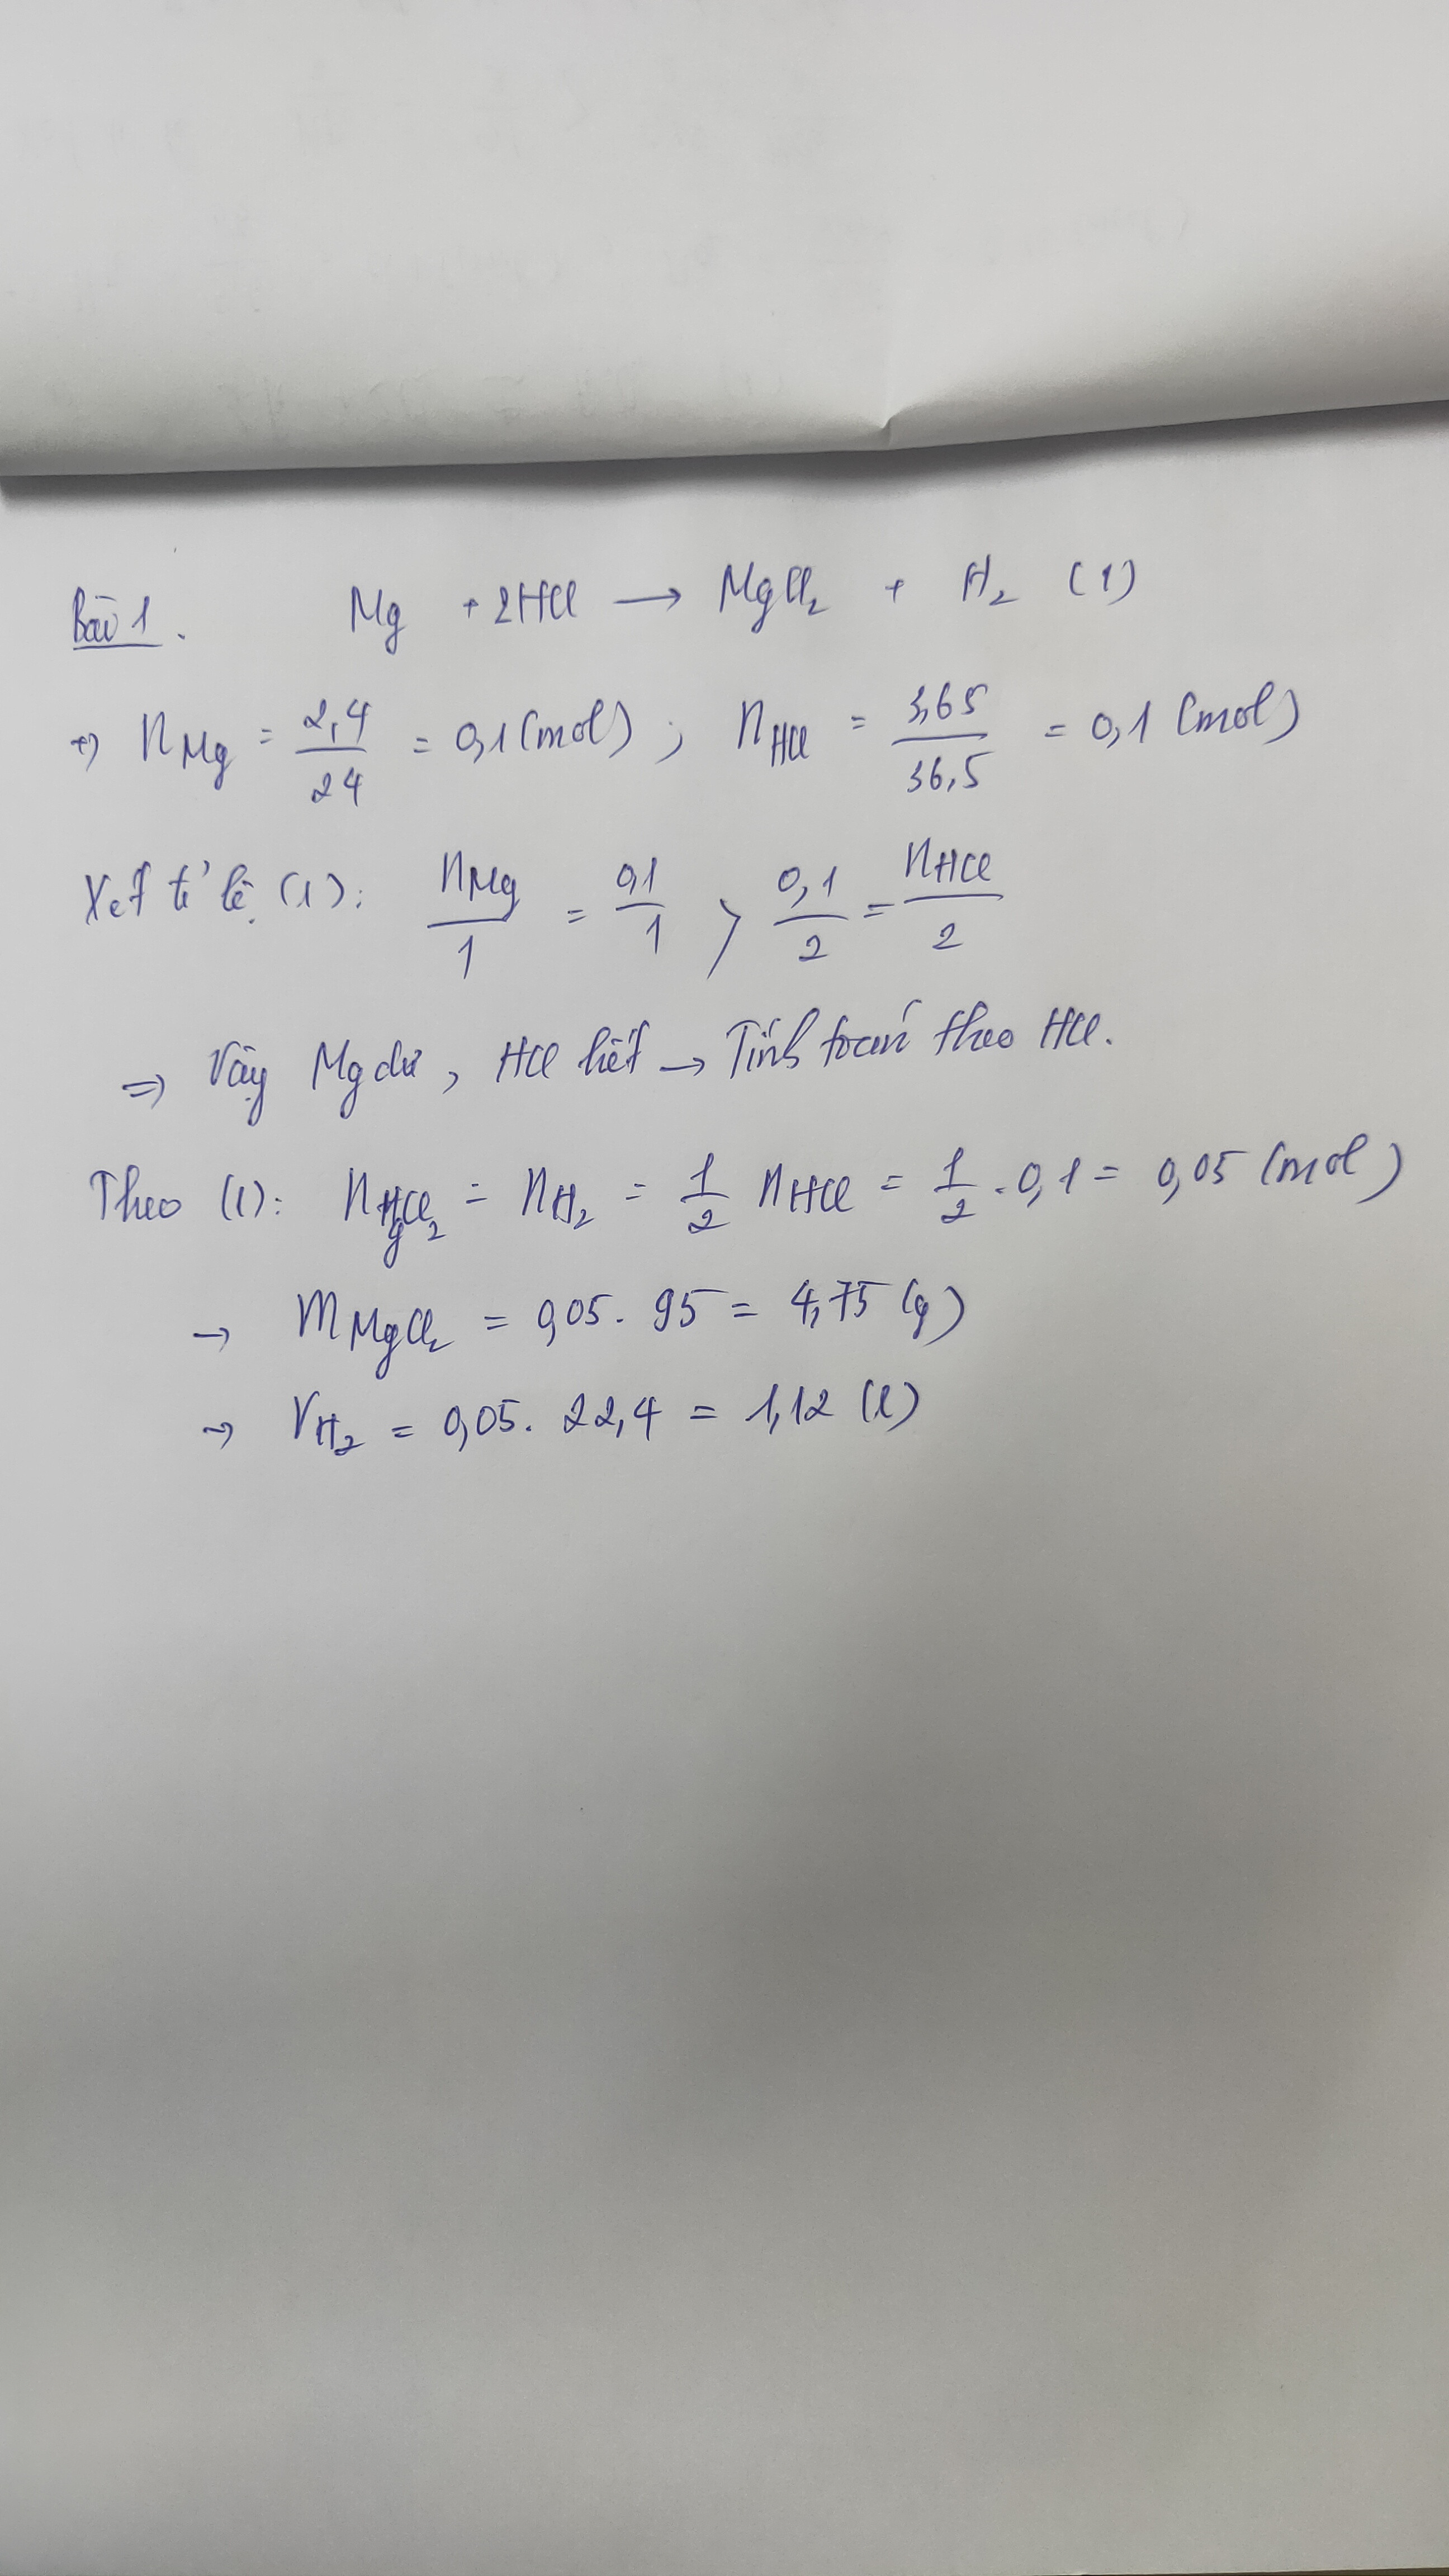 Bài 1. Mg + 2HCl → MgCl₂ + H₂ (1)
+) nMg = 2,4/24 = 0,1 (mol) ; nHCl = 3,65/36,5 = 0,1 (mol)
Xét tỉ lệ (1): nMg/1 = 0,1/1 > 0,1/2 = nHCl/2
⇒ Vậy Mg dư, HCl hết → Tính toán theo HCl.
Theo (1): nMgCl₂ = nH₂ = 1/2 nHCl = 1/2 . 0,1 = 0,05 (mol)
→ mMgCl₂ = 0,05 . 95 = 4,75 (g)
→ VH₂ = 0,05 . 22,4 = 1,12 (l)